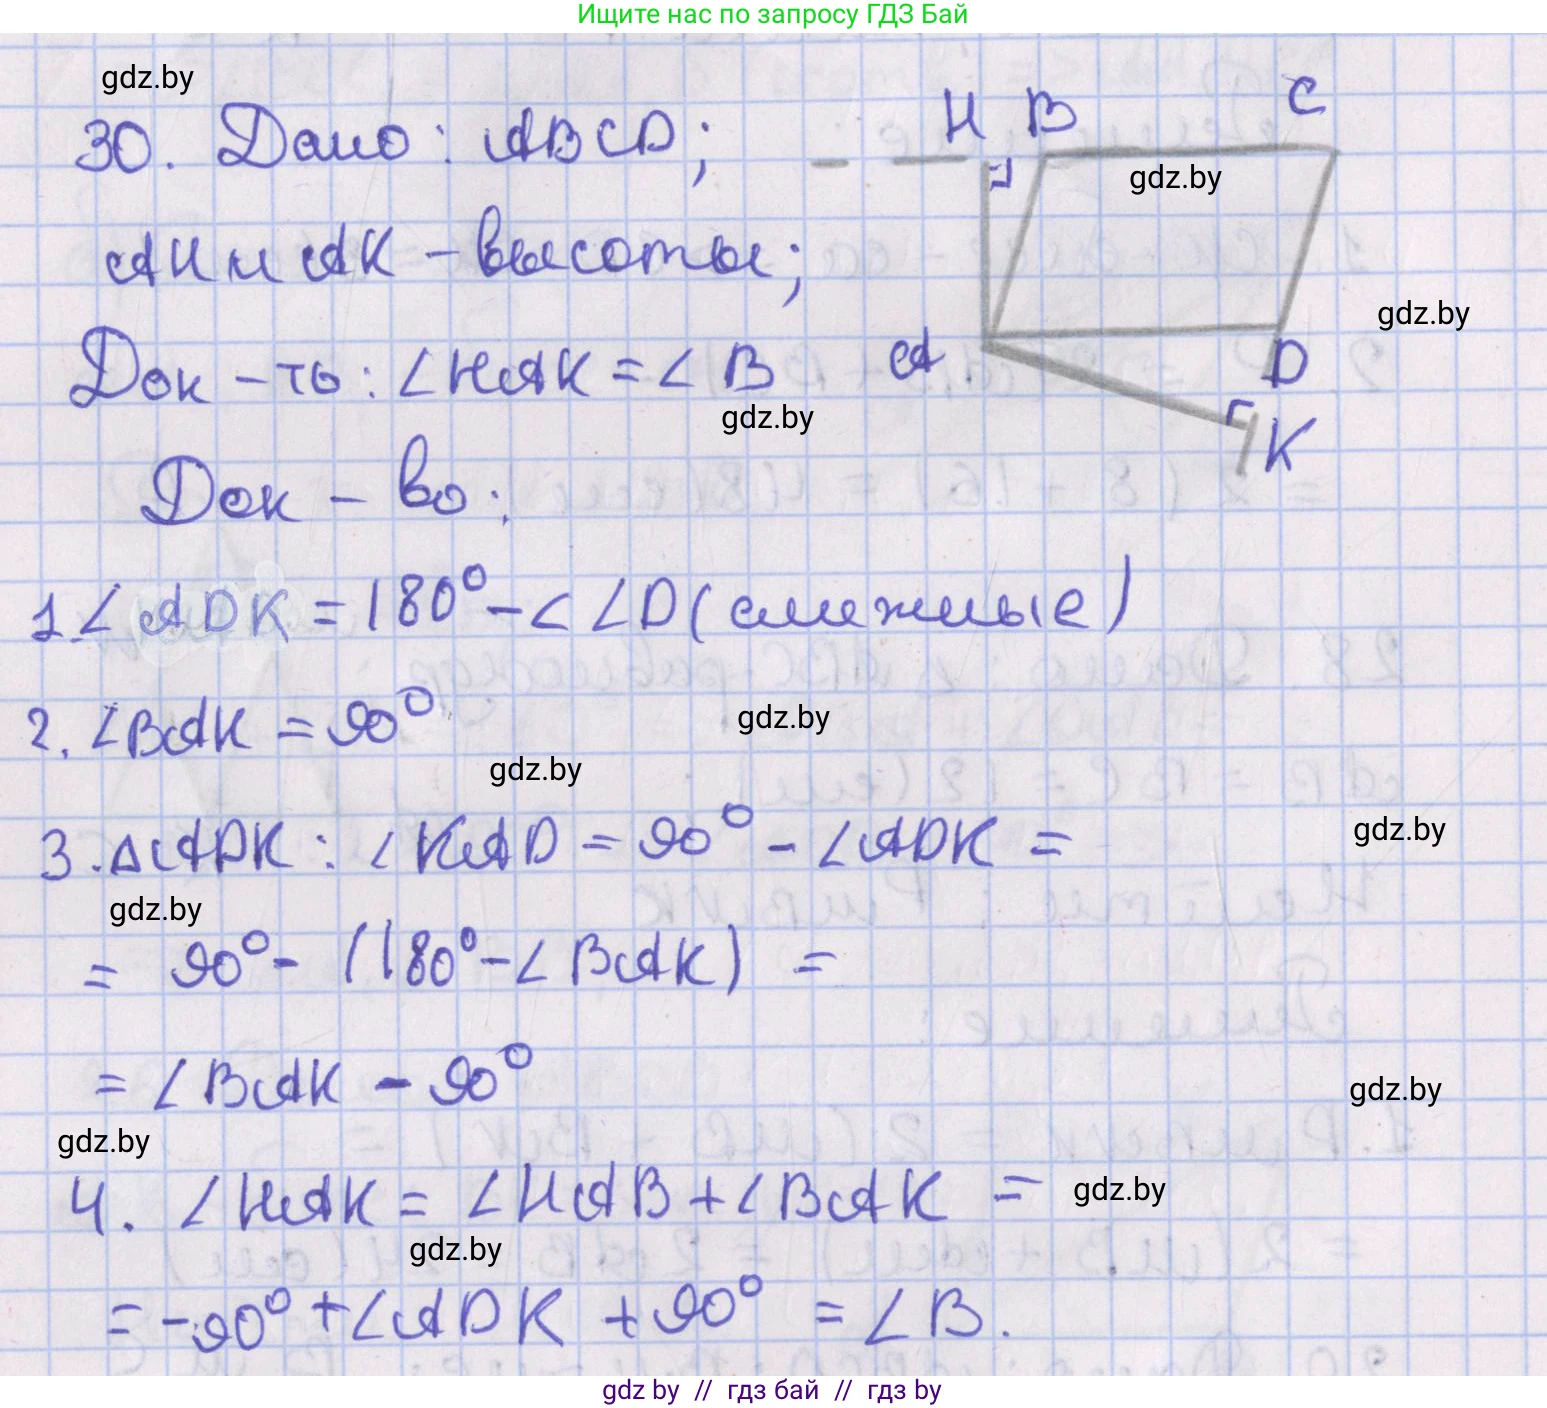 Ищите нас по запросу ГДЗ Бай
gdz.by
30. Дано: ABCD;
H B C
gdz.by
AH и AK – высоты;
gdz.by
Док-ть: ∠HAK = ∠B
A D
gdz.by
K
Док-во:
1. ∠ADK = 180° - < ∠D (смежные)
2. ∠BAK = 90°
gdz.by
gdz.by
3. △ADK: ∠KAD = 90° - ∠ADK =
gdz.by
gdz.by
= 90° - (180° - ∠BAK) =
= ∠BAK - 90°
gdz.by
gdz.by
4. ∠HAK = ∠HAB + ∠BAK =
gdz.by
gdz.by
= -90° + ∠ADK + 90° = ∠B.
gdz by // гдз бай // гдз by